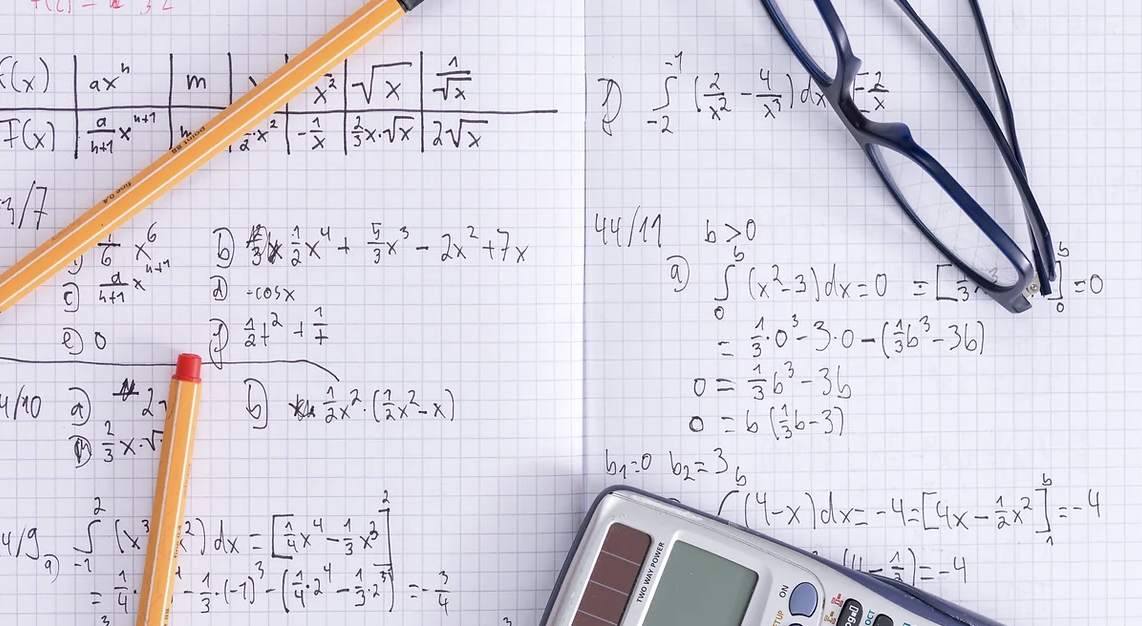 f(x) | ax^n | m | x | x² | √x | 1/√x
F(x) | a/(n+1) x^(n+1) | | 1/2·x² | -1/x | 2/3x·√x | 2√x
point 88
fine 0.4
/7
1/6 x^6 b) 1/2x⁴ + 5/3x³ - 2x² + 7x
c) a/(n+1) x^(n+1) d) -cosx
e) 0 f) 1/2t² + 1/t
4/10 a) 2 b) 1/2x²·(1/2x²-x)
2/3x·√
4/9 a) ∫_{-1}^{2} (x³ x²)dx = [1/4x⁴ - 1/3x³]²
= 1/4· - 1/3·(-1)³ - (1/4·2⁴ - 1/3·2³) = -3/4
f) ∫_{-2}^{-1} (2/x² - 4/x³)dx = -2/x
44/11 b>0
a) ∫_0^b (x²-3)dx=0 = [1/3x³ ]_0^b =0
= 1/3·0³-3·0-(1/3b³-3b)
0 = 1/3b³-3b
0 = b(1/3b-3)
b₁=0 b₂=3
∫^b (4-x)dx=-4=[4x-1/2x²]_1^b=-4
(4-1/2)=-4
TWO WAY POWER
ON
SETUP
OCT